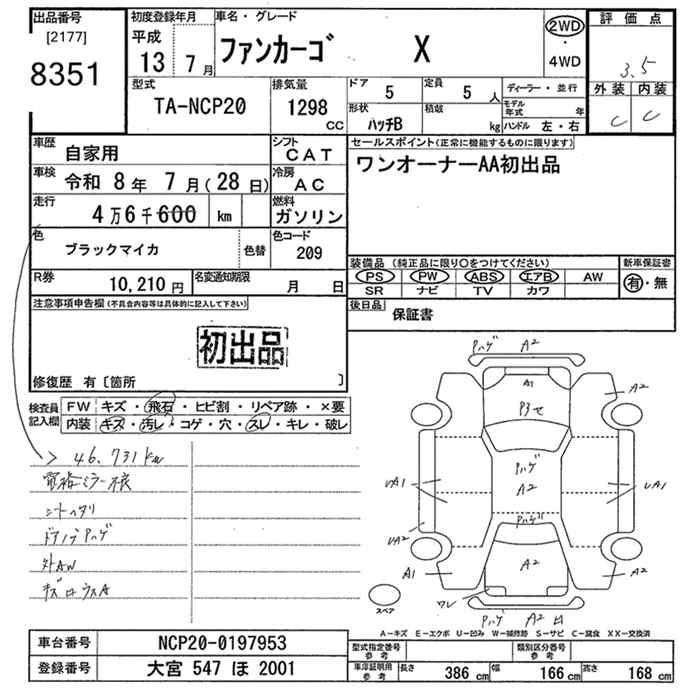 出品番号
[2177]
8351
初度登録年月
平成
13 7月
車名・グレード
ファンカーゴ X
2WD
・
4WD
評価点
3.5
外装 内装
C C
型式
TA-NCP20
排気量
1298 CC
ドア 5
定員 5 人
ディーラー・並行
形状 ハッチB
積載 kg
モデル年式 年
ハンドル 左・右
車歴 自家用
シフト CAT
車検 令和 8年 7月(28日)
冷房 AC
走行 4万6千600 km
燃料 ガソリン
色 ブラックマイカ 色替
色コード 209
R券 10,210円
名変通知期限 月 日
セールスポイント(正常に機能するものに限ります)
ワンオーナーAA初出品
装備品 (純正品に限り○をつけてください)
PS PW ABS エアB AW
SR ナビ TV カワ
新車保証書
有・無
後日品 保証書
注意事項申告欄(不具合内容等は具体的に記入して下さい)
初出品
修復歴 有〔箇所 〕
検査員記入欄
FW キズ・飛石・ヒビ割・リペア跡・×要
内装 キズ・汚レ・コゲ・穴・スレ・キレ・破レ
> 46,731km
電格ミラー不良
シートヘタリ
ドアノブPハゲ
外AW
Pハゲ A2
A1
A2
P3セ
Pハゲ
A2
UA1
UA1
UA2
Pハゲ
A2
A1
A2
ワレ
スペア
Pハゲ A2
A-キズ E-エクボ U-凹み W-補修跡 S-サビ C-腐食 XX-交換済
車台番号 NCP20-0197953
登録番号 大宮 547 ほ 2001
型式指定番号 参考
類別区分番号 参考
車庫証明用 参考
長さ 386 cm
幅 166 cm
高さ 168 cm